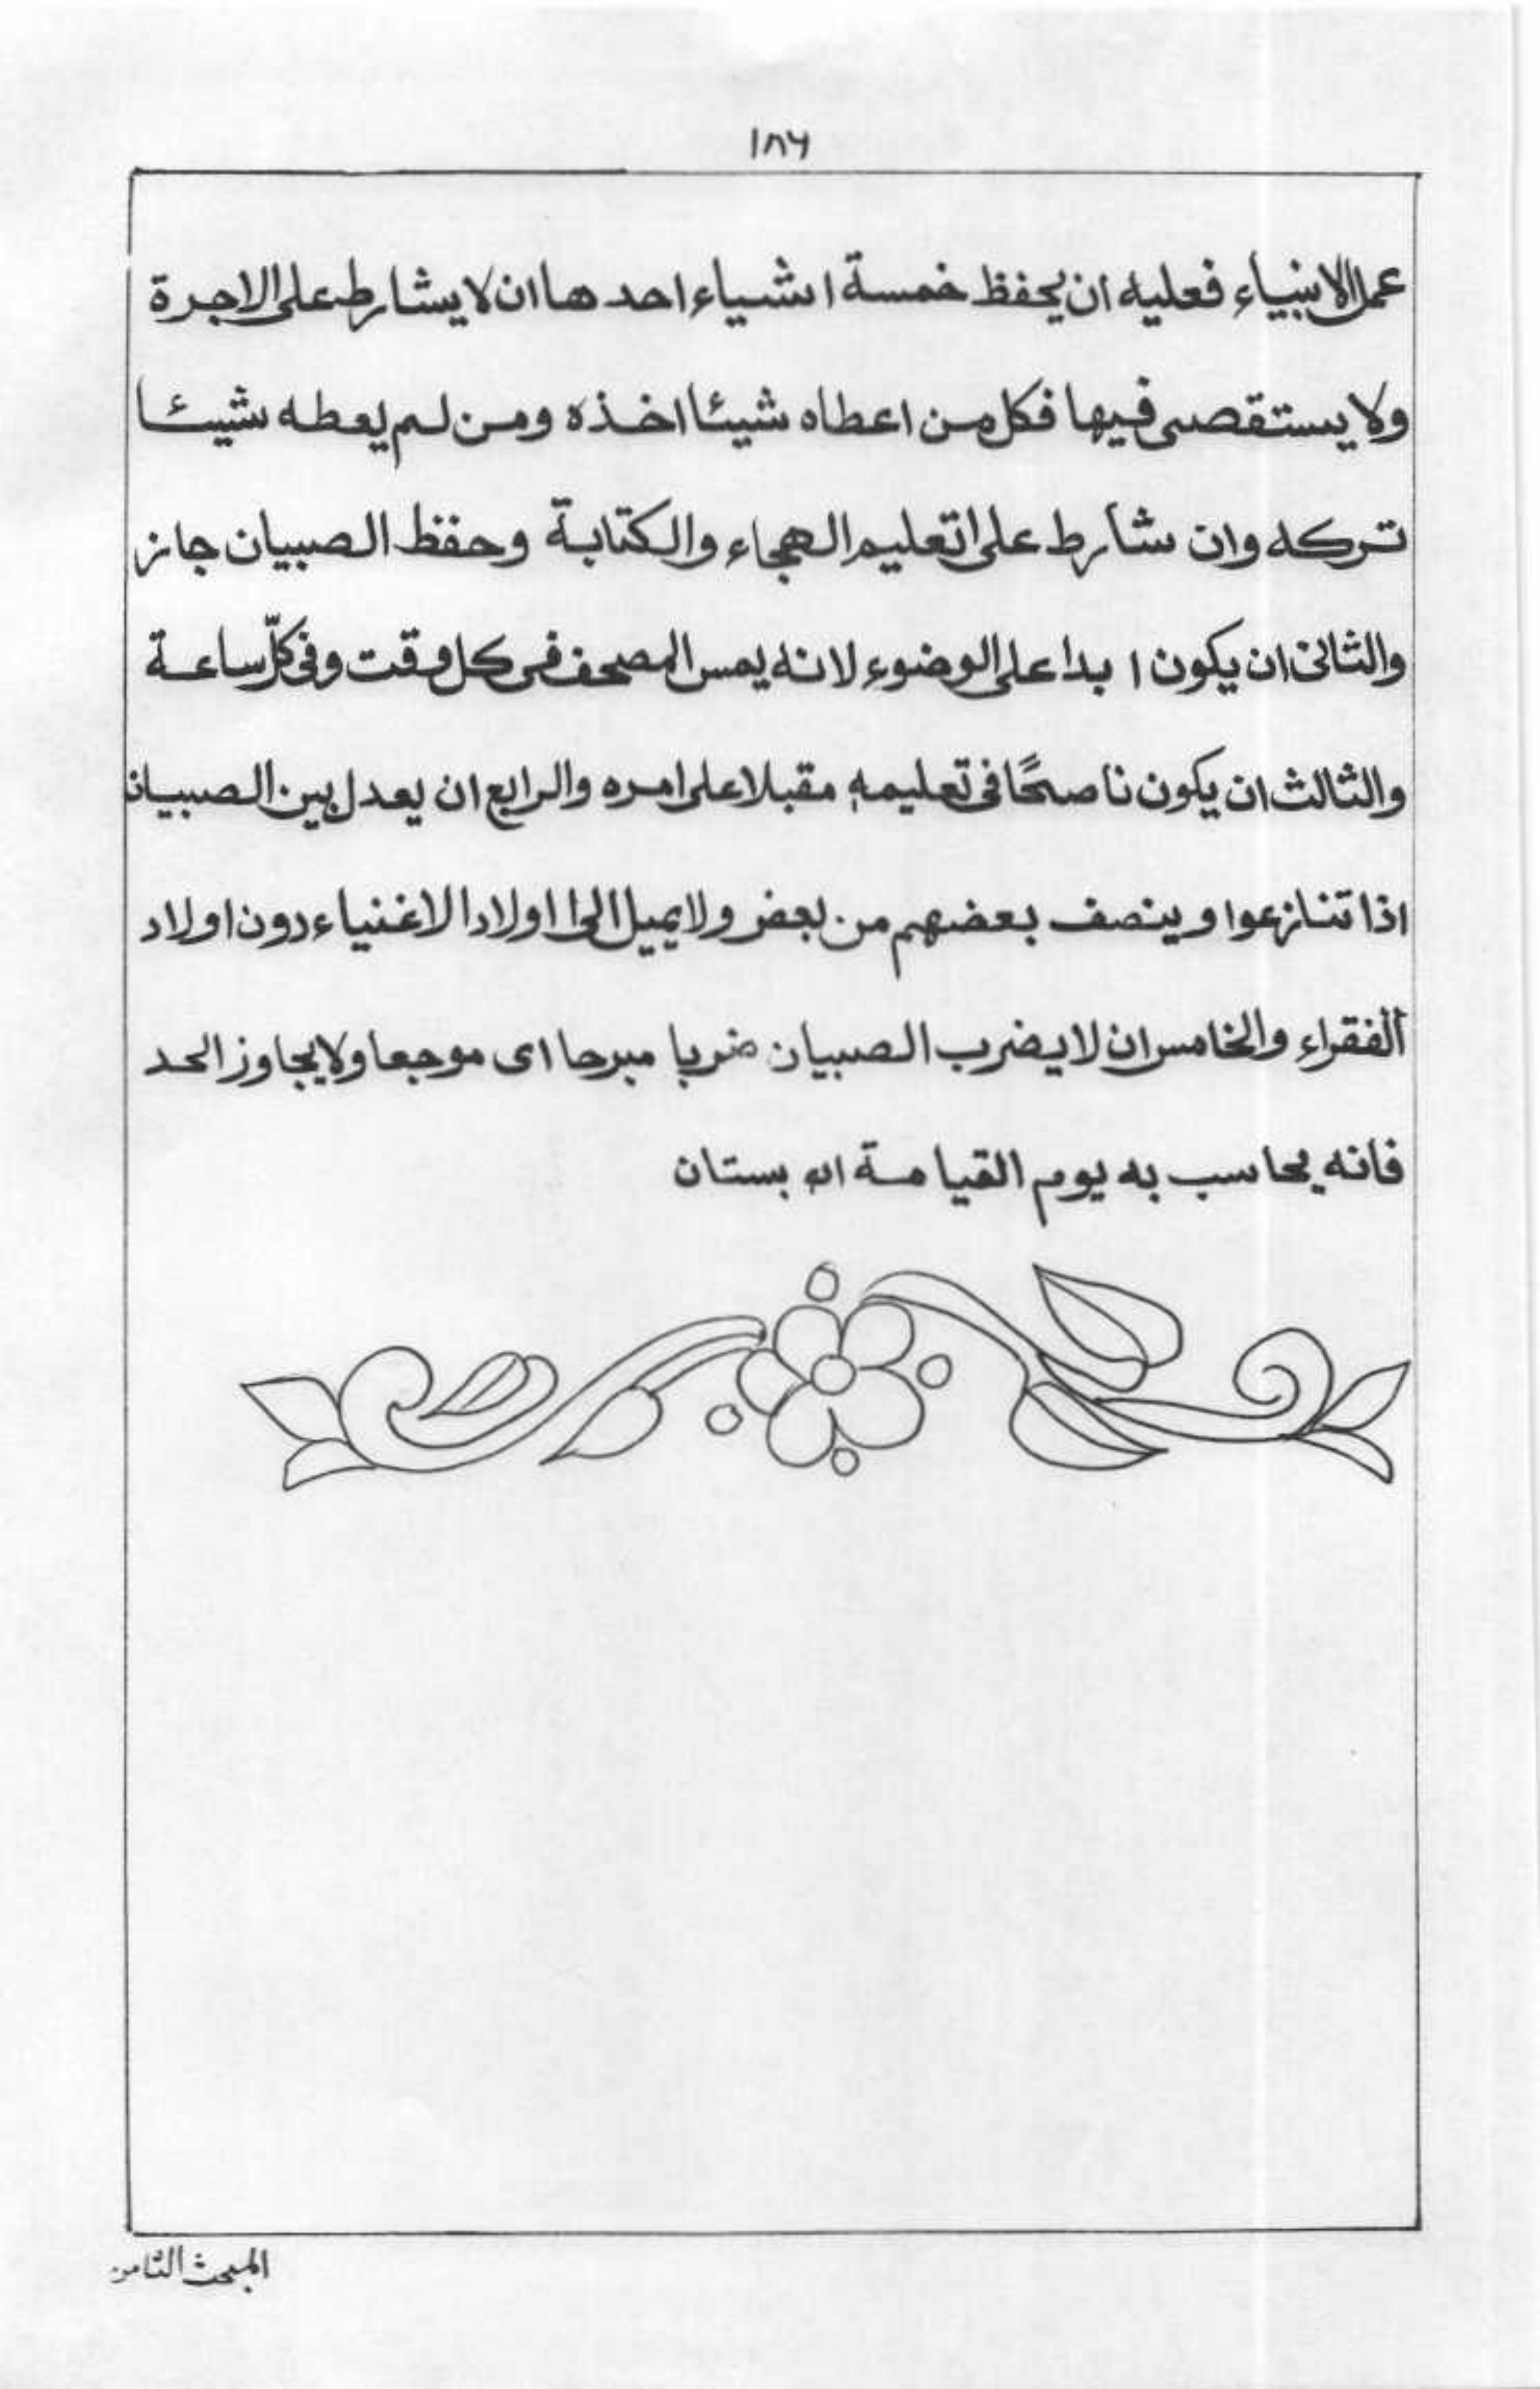 ١٨٦
عمل الانبياء فعليه ان يحفظ خمسة اشياء احدها ان لا يشارط على الاجرة
ولا يستقصى فيها فكل من اعطاه شيئا اخذه ومن لم يعطه شيئا
تركه وان شارط على تعليم الهجاء والكتابة وحفظ الصبيان جاز
والثانى ان يكون ابدا على الوضوء لانه يمس المصحف فى كل وقت وفى كلّ ساعة
والثالث ان يكون ناصحًا فى تعليمه مقبلا على امره والرابع ان يعدل بين الصبيان
اذا تنازعوا وينصف بعضهم من بعض ولا يميل الى اولاد الاغنياء دون اولاد
الفقراء والخامس ان لا يضرب الصبيان ضربا مبرحا اى موجعا ولا يجاوز الحد
فانه يحاسب به يوم القيامة اه بستان
المبحث الثامن